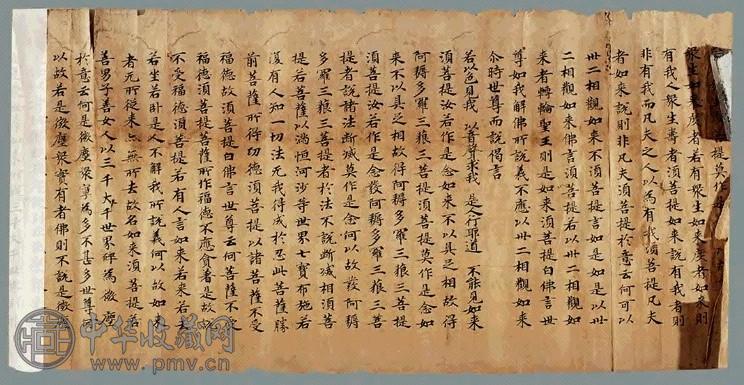 提莫作
眾生如來度者若有眾生如來度者如來則
有我人眾生壽者須菩提如來說有我者則
非有我而凡夫之人以為有我須菩提凡夫
者如來說則非凡夫須菩提於意云何可以
卅二相觀如來不須菩提言如是如是以卅
二相觀如來佛言須菩提若以卅二相觀如
來者轉輪聖王則是如來須菩提白佛言世
尊如我解佛所說義不應以卅二相觀如來
尒時世尊而說偈言
若以色見我 以音聲求我 是人行耶道 不能見如來
須菩提汝若作是念如來不以具足相故得
阿耨多羅三藐三菩提須菩提莫作是念如
來不以具足相故得阿耨多羅三藐三菩提
須菩提汝若作是念發阿耨多羅三藐三菩
提者說諸法斷滅莫作是念何以故發阿耨
多羅三藐三菩提者於法不說斷滅相須菩
提若菩薩以滿恒河沙等世界七寶布施若
復有人知一切法无我得成於忍此菩薩勝
前菩薩所得功德須菩提以諸菩薩不受
福德故須菩提白佛言世尊云何菩薩不受
福德須菩提菩薩所作福德不應貪著是故說
不受福德須菩提若有人言如來若來若去
若坐若臥是人不解我所說義何以故如來
者无所從來亦無所去故名如來須菩提若
善男子善女人以三千大千世界碎為微塵
於意云何是微塵眾寧為多不甚多世尊何
以故若是微塵眾實有者佛則不說是微塵
中华收藏网
www.pmv.cn